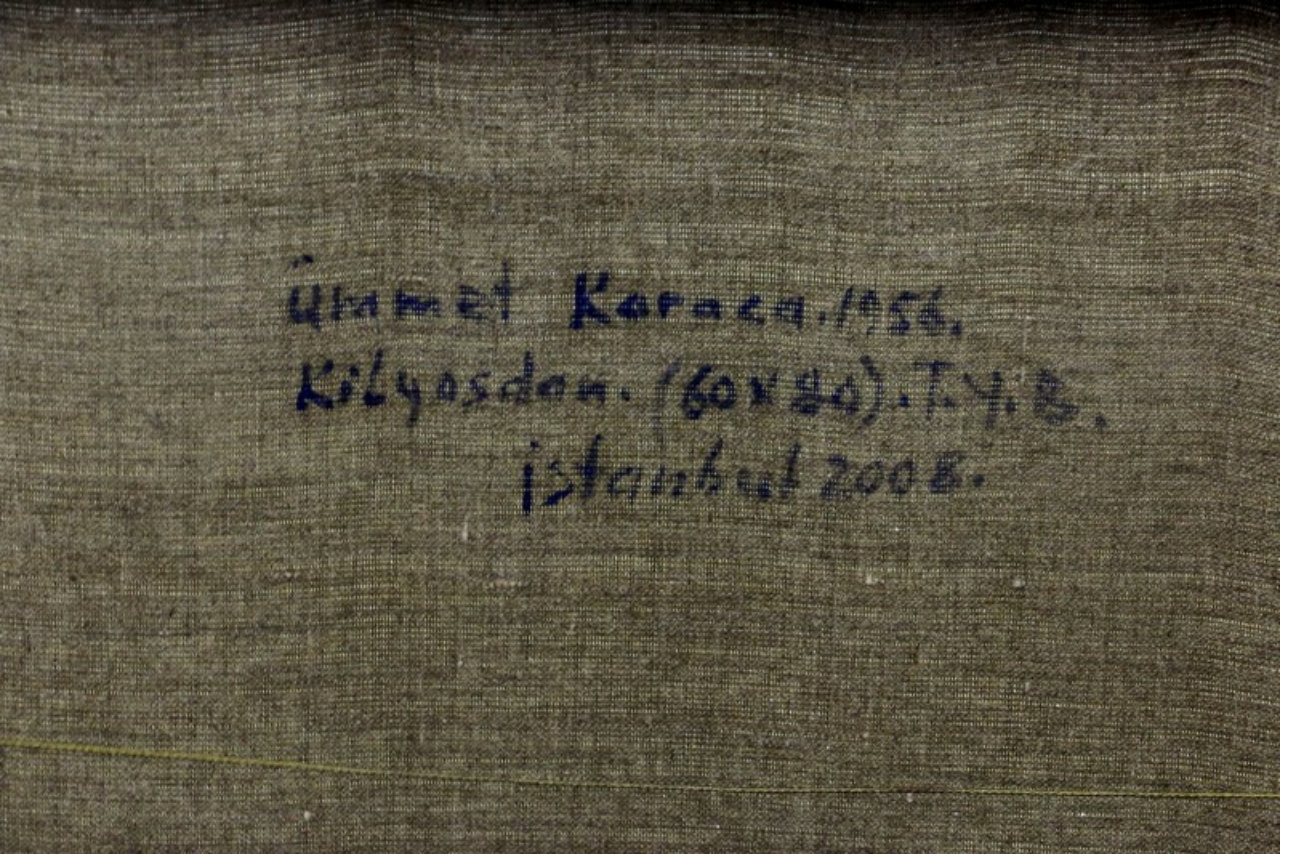 Ümmet Karaca.1956.
Kilyosdan. (60x80).T.Y.B.
istanbul 2008.